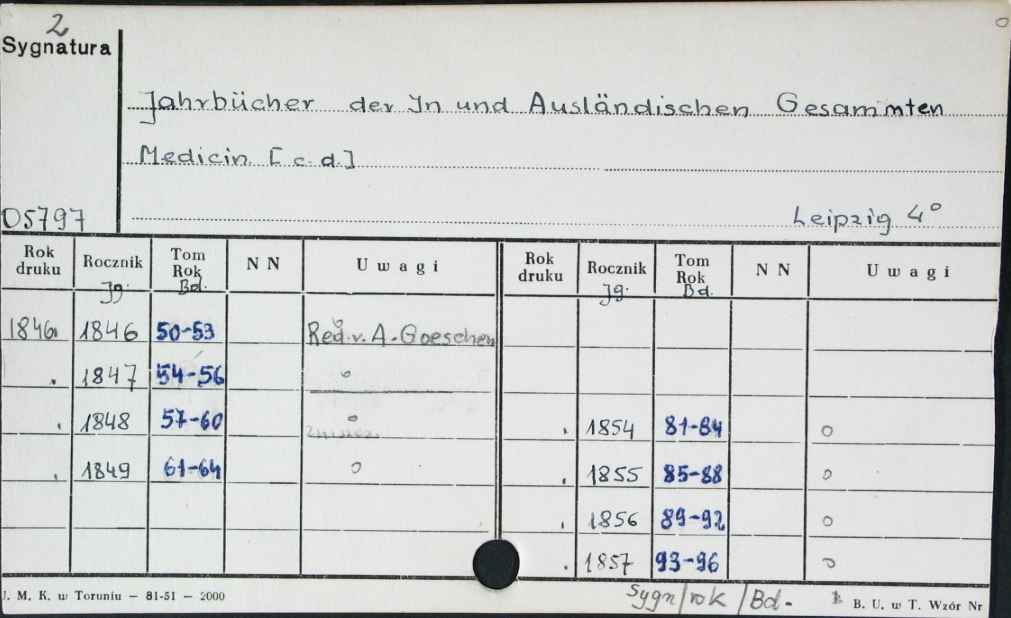 2
Sygnatura
Jahrbücher der In und Ausländischen Gesammten
Medicin [c.d.]
05797 Leipzig 4°
Rok druku Rocznik Jg. Tom Rok Bd. N N Uwagi Rok druku Rocznik Jg. Tom Rok Bd. N N Uwagi
1846 1846 50-53 Red. v. A. Goeschen
. 1847 54-56
. 1848 57-60 . 1854 81-84 o
. 1849 61-64 o . 1855 85-88 o
. 1856 89-92 o
. 1857 93-96 o
J. M. K. w Toruniu – 81-51 – 2000 Sygn/rok/Bd. B. U. w T. Wzór Nr